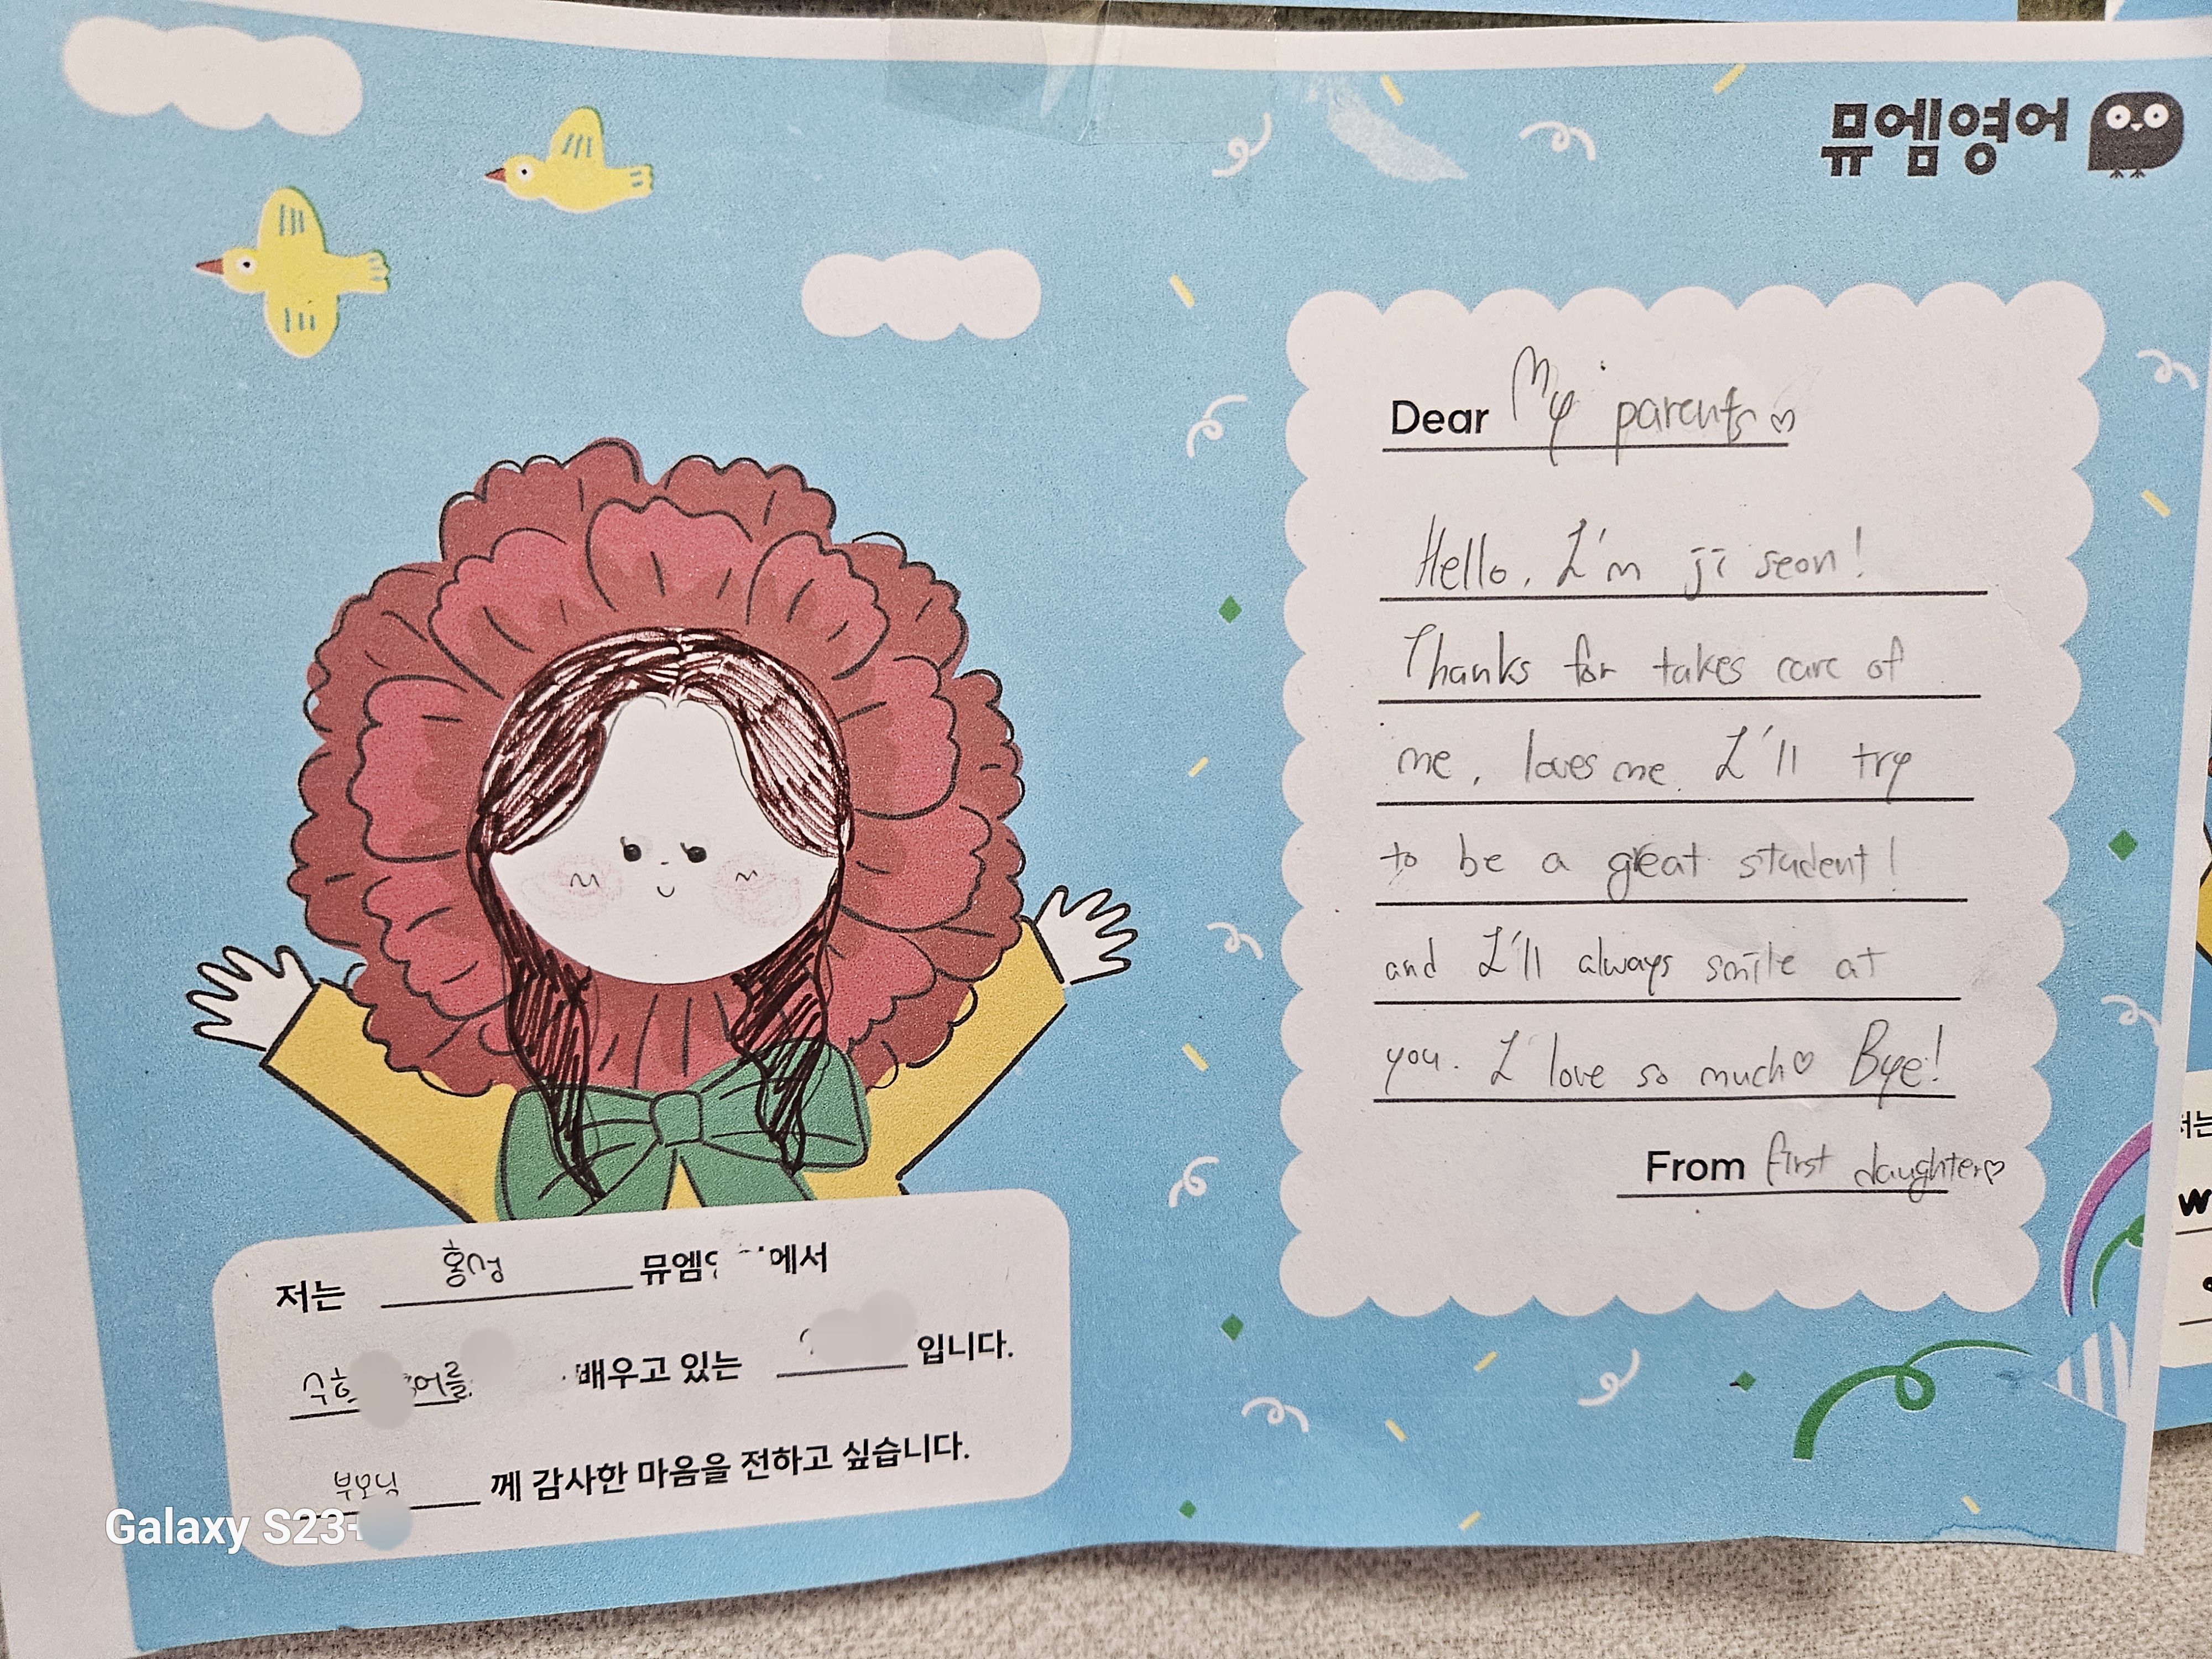 뮤엠영어
Dear My parents♡
Hello, I'm ji seon!
Thanks for takes care of
me, loves me. I'll try
to be a great student!
and I'll always smile at
you. I love so much♡ Bye!
From first daughter♡
저는 홍성 뮤엠 에서
배우고 있는 입니다.
부모님 께 감사한 마음을 전하고 싶습니다.
Galaxy S23+